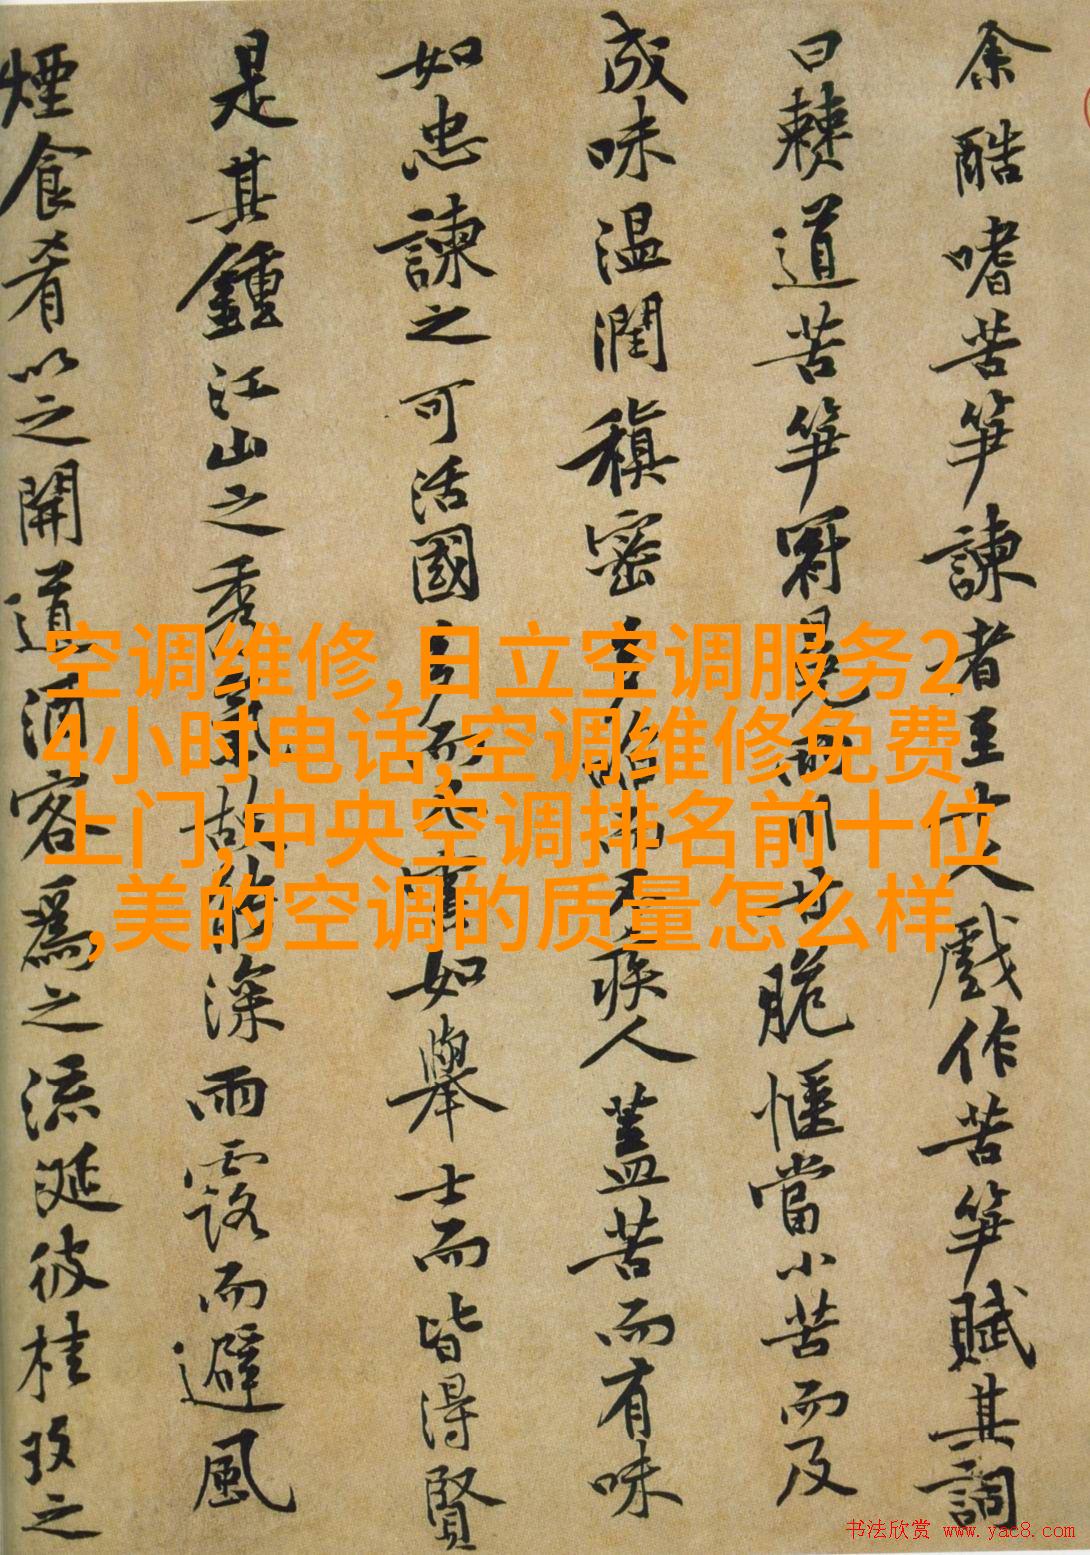 余酷嗜苦笋諫者至十人戲作苦笋賦其詞
曰僰道苦笋冠冕兩川甘脆愜當小苦而及
成味温潤稹密多啗而不疾人蓋苦而有味
如忠諫之可活國多而不害如舉士而皆得賢
是其鍾江山之秀氣故能深雨露而避風
煙食肴以之開道酒客爲之流涎彼桂玫之
空调维修,日立空调服务2
4小时电话,空调维修免费
上门,中央空调排名前十位
,美的空调的质量怎么样
书法欣赏 www.yac8.com